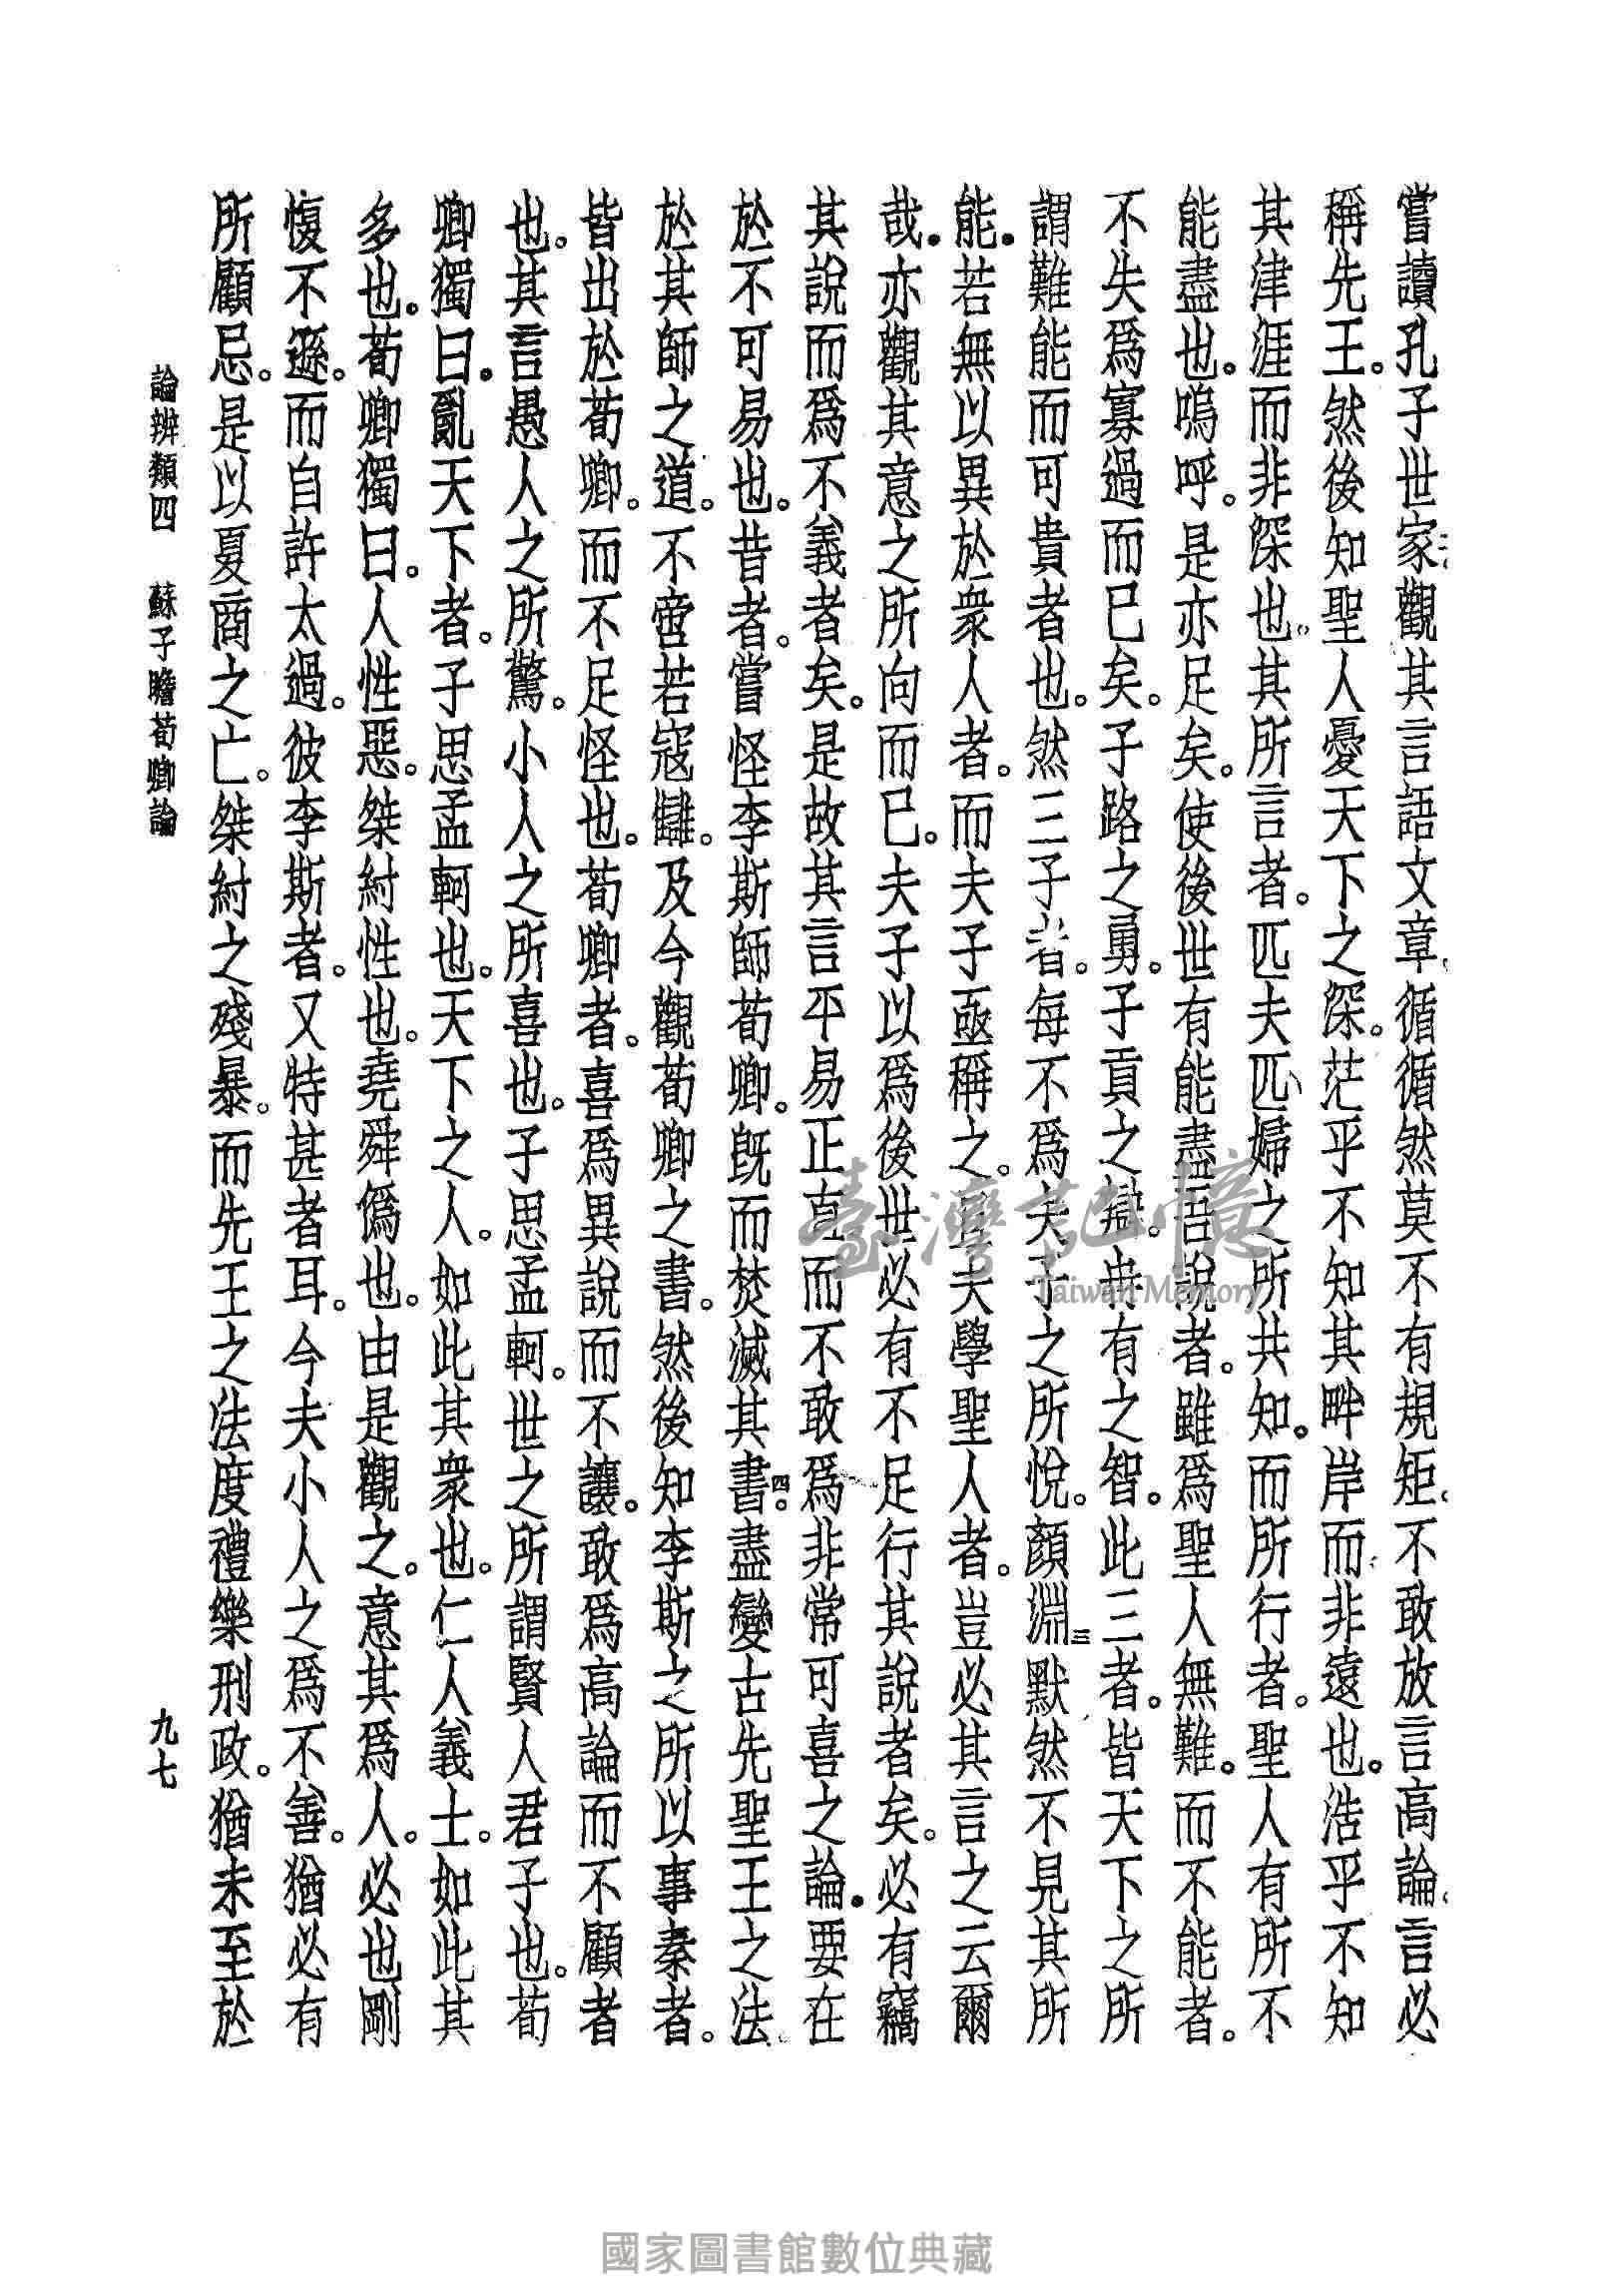 嘗讀孔子世家觀其言語文章。循循然莫不有規矩。不敢放言高論。言必
稱先王。然後知聖人憂天下之深。茫乎不知其畔岸而非遠也。浩乎不知
其津涯而非深也。其所言者。匹夫匹婦之所共知。而所行者。聖人有所不
能盡也。嗚呼。是亦足矣。使後世有能盡吾說者。雖為聖人無難。而不能者。
不失為寡過而已矣。子路之勇。子貢之辯。冉有之智。此三者。皆天下之所
謂難能而可貴者也。然三子者。每不為夫子之所悅。顏淵三默然不見其所
能。若無以異於衆人者。而夫子亟稱之。且夫學聖人者。豈必其言之云爾
哉。亦觀其意之所向而已。夫子以為後世必有不足行其說者矣。必有竊
其說而為不義者矣。是故其言平易正直而不敢為非常可喜之論。要在
於不可易也。昔者。嘗怪李斯師荀卿。既而焚滅其書。四盡變古先聖王之法。
於其師之道。不啻若寇讎。及今觀荀卿之書。然後知李斯之所以事秦者。
皆出於荀卿。而不足怪也。荀卿者。喜為異說而不讓。敢為高論而不顧者
也。其言愚人之所驚。小人之所喜也。子思孟軻。世之所謂賢人君子也。荀
卿獨曰。亂天下者。子思孟軻也。天下之人。如此其衆也。仁人義士。如此其
多也。荀卿獨曰。人性惡。桀紂性也。堯舜僞也。由是觀之。意其為人。必也剛
愎不遜。而自許太過。彼李斯者。又特甚者耳。今夫小人之為不善。猶必有
所顧忌。是以夏商之亡。桀紂之殘暴。而先王之法度禮樂刑政。猶未至於
論辨類四　蘇子瞻荀卿論　九七
臺灣記憶
Taiwan Memory
國家圖書館數位典藏